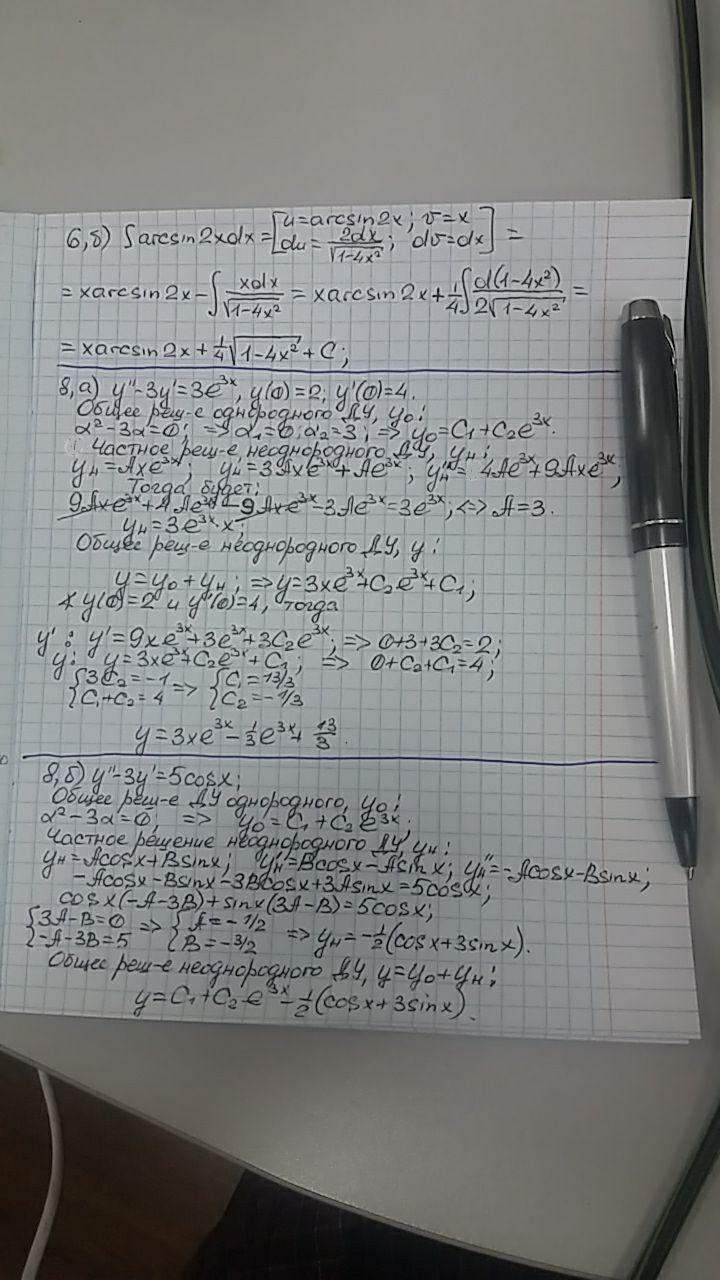 6,б) ∫arcsin2xdx=[u=arcsin2x; v=x
du=2dx/√(1-4x²); dv=dx]=
=xarcsin2x-∫xdx/√(1-4x²)=xarcsin2x+1/4∫d(1-4x²)/2√(1-4x²)=
=xarcsin2x+1/4√(1-4x²)+C;
8,а) y''-3y'=3e^3x, y(0)=2, y'(0)=4.
Общее реш-е однородного ДУ, y₀:
α²-3α=0; ⇒α₁=0; α₂=3; ⇒ y₀=C₁+C₂e^3x.
Частное реш-е неоднородного ДУ, yн:
yн=Axe^3x; y'н=3Axe^3x+Ae^3x; y''н=4Ae^3x+9Axe^3x;
Тогда будет:
9Axe^3x+4Ae^3x-9Axe^3x-3Ae^3x=3e^3x; <=> A=3.
yн=3e^3x·x.
Общее реш-е неоднородного ДУ, y:
y=y₀+yн; ⇒y=3xe^3x+C₂e^3x+C₁;
∢ y(0)=2 и y'(0)=4, тогда
y': y'=9xe^3x+3e^3x+3C₂e^3x; ⇒ 0+3+3C₂=2;
y: y=3xe^3x+C₂e^3x+C₁; ⇒ 0+C₂+C₁=4;
{3C₂=-1 ⇒ {C₁=13/3
{C₁+C₂=4 {C₂=-1/3
y=3xe^3x-1/3e^3x+13/3.
8,б) y''-3y'=5cosx;
Общее реш-е ДУ однородного, y₀:
α²-3α=0; ⇒ y₀=C₁+C₂e^3x.
Частное решение неоднородного ДУ, yн:
yн=Acosx+Bsinx; y'н=Bcosx-Asinx; y''н=-Acosx-Bsinx;
-Acosx-Bsinx-3Bcosx+3Asinx=5cosx;
cosx(-A-3B)+sinx(3A-B)=5cosx;
{3A-B=0 ⇒ {A=-1/2
{-A-3B=5 {B=-3/2 ⇒ yн=-1/2(cosx+3sinx).
Общее реш-е неоднородного ДУ, y=y₀+yн:
y=C₁+C₂e^3x-1/2(cosx+3sinx).